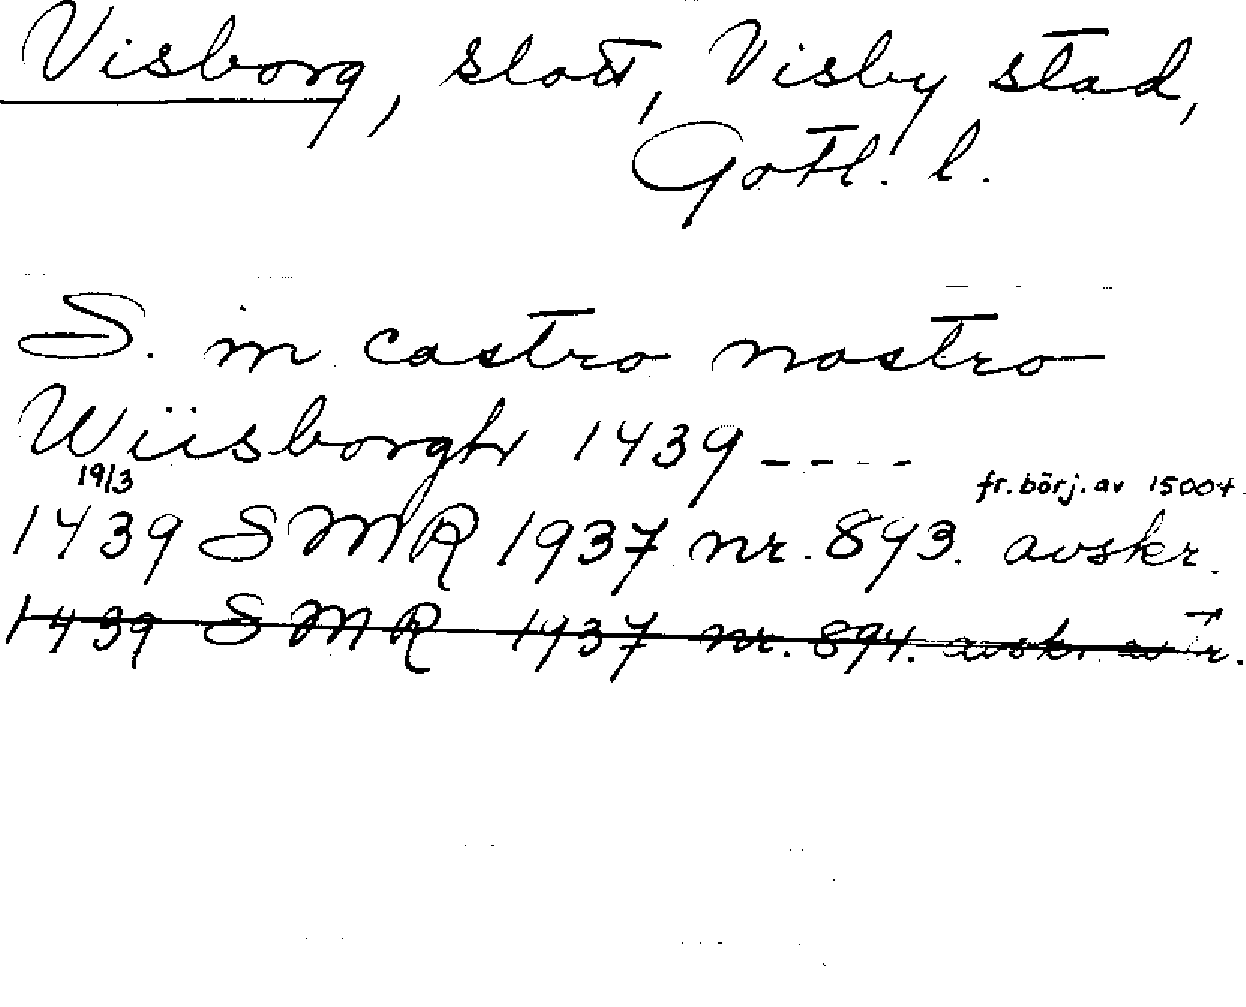 Visborg, slott, Visby stad,
Gotl. l.
S. in castro nostro
Wiisborgh 1439 ----
19/3
fr. börj. av 1500-t.
1439 SMR 1937 nr. 893. avskr.
1439 SMR 1937 nr. 894. avskr. av